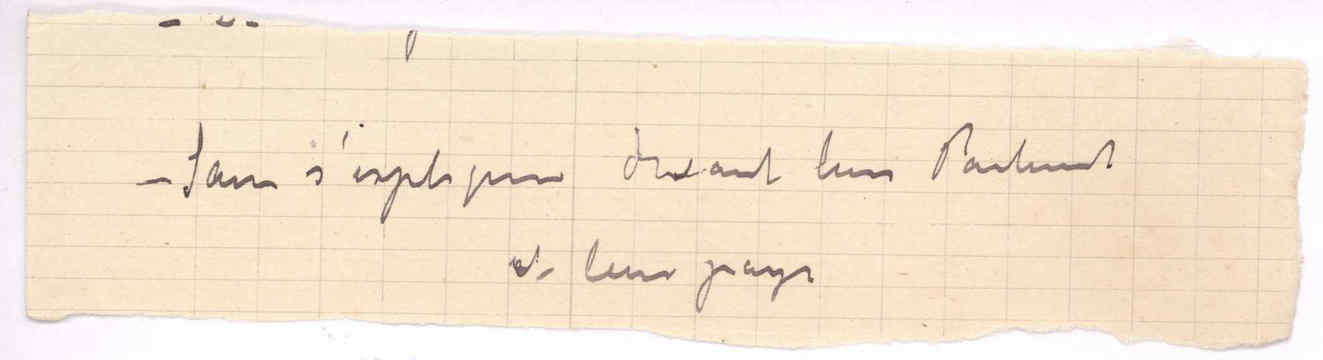 - Sans s'expliquer devant leur Parlement
et leur pays